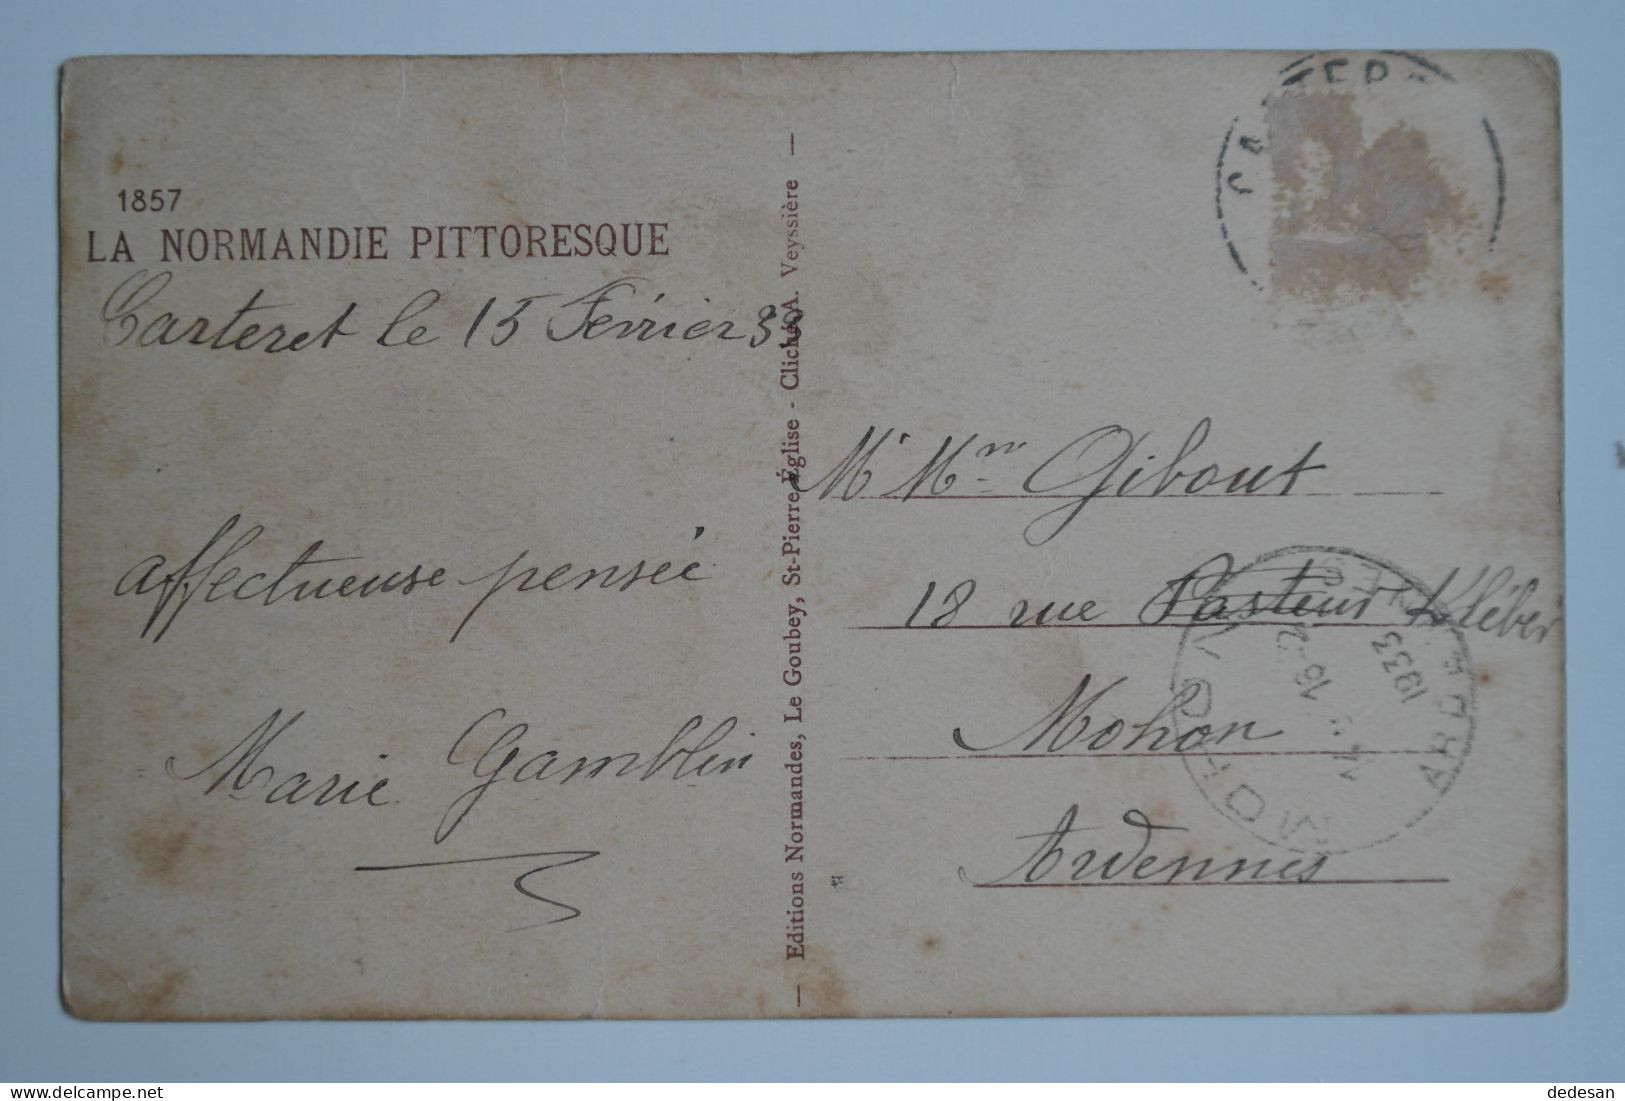 1857
LA NORMANDIE PITTORESQUE
Carteret le 15 Février 33
affectueuse pensée
Marie Gamblin
— Editions Normandes, Le Goubey, St-Pierre-Église - Cliché A. Veyssière —
Mr Mme Gibout
18 rue Pasteur Kléber
Mohon
Ardennes
MOHON
16-2
1933
dedesan